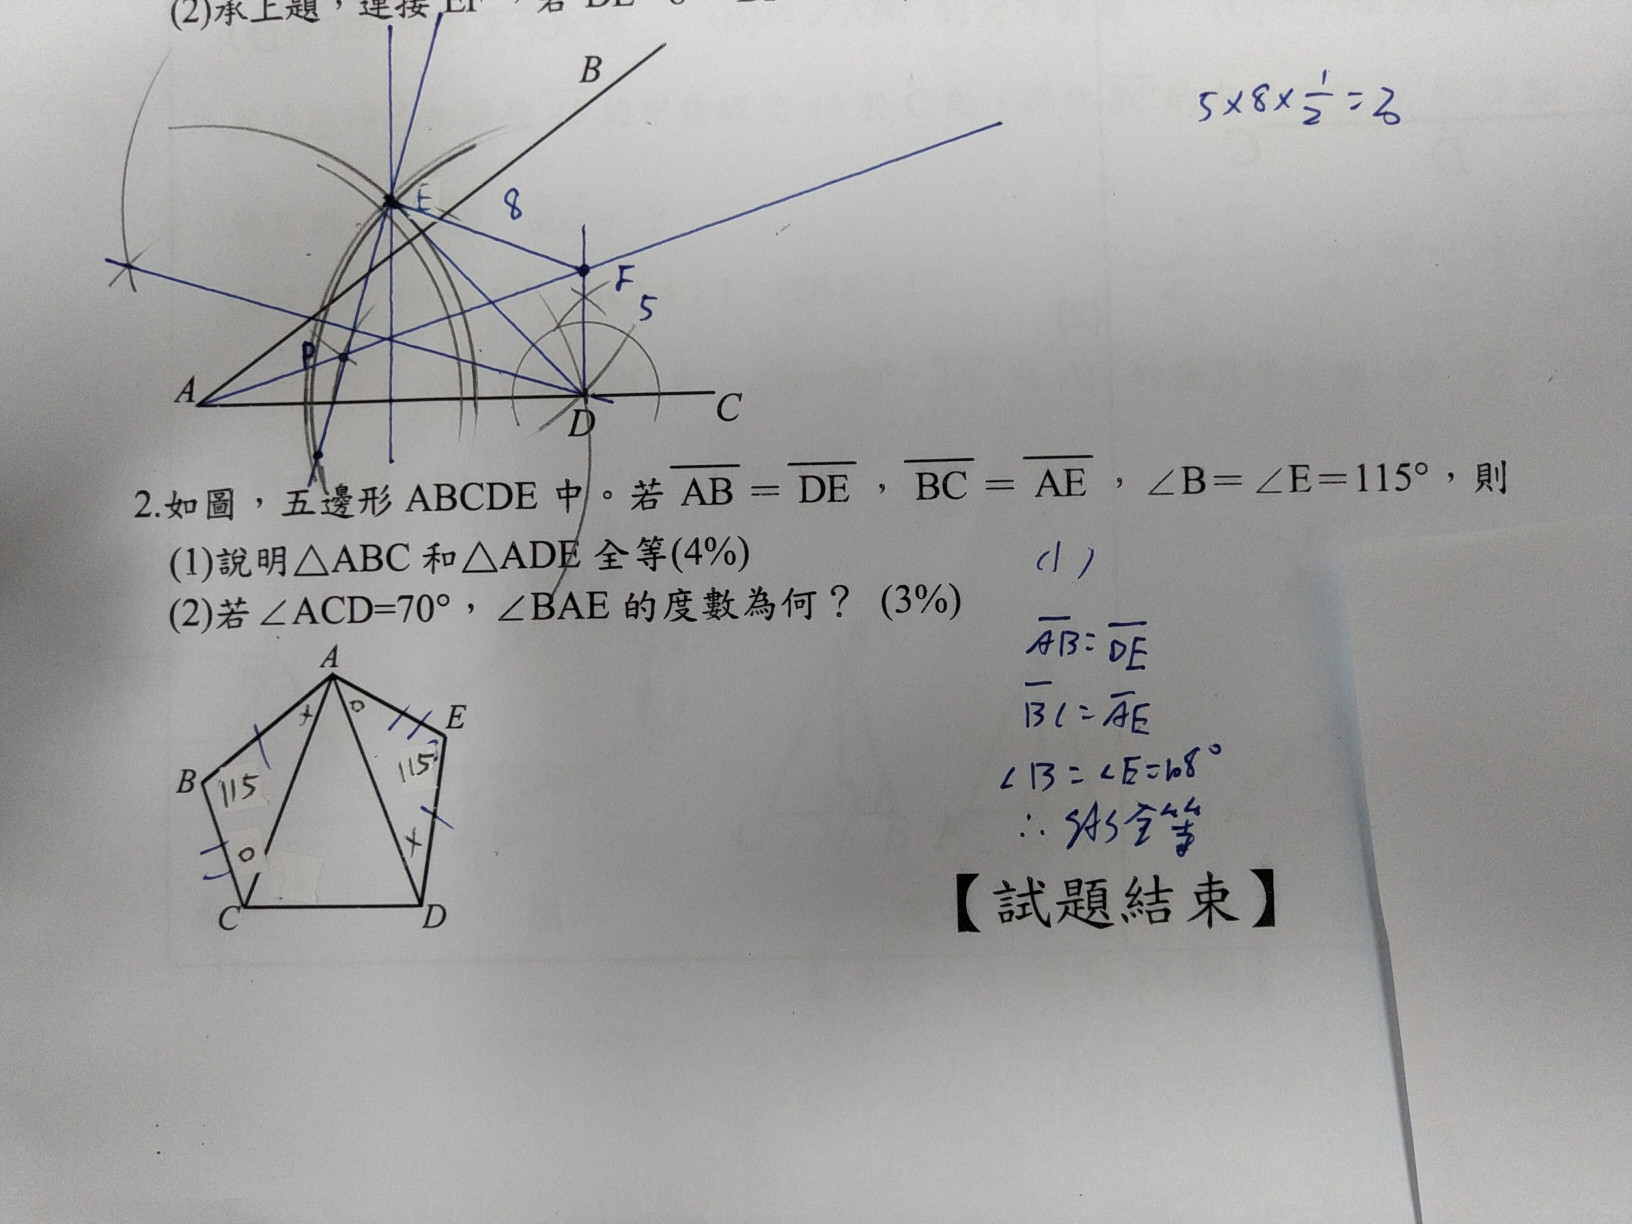 (2)承上題，連接 EF ，若 DE
B
5×8×1/2=20
E
8
F
5
P
A
D
C
2.如圖，五邊形 ABCDE 中。若 AB = DE ，BC = AE ，∠B=∠E=115°，則
(1)說明△ABC 和△ADE 全等(4%)
(1)
(2)若∠ACD=70°，∠BAE 的度數為何？ (3%)
AB=DE
BC=AE
∠B=∠E=108°
∴SAS全等
A
× o
E
B
115
115°
o
×
C
D
【試題結束】